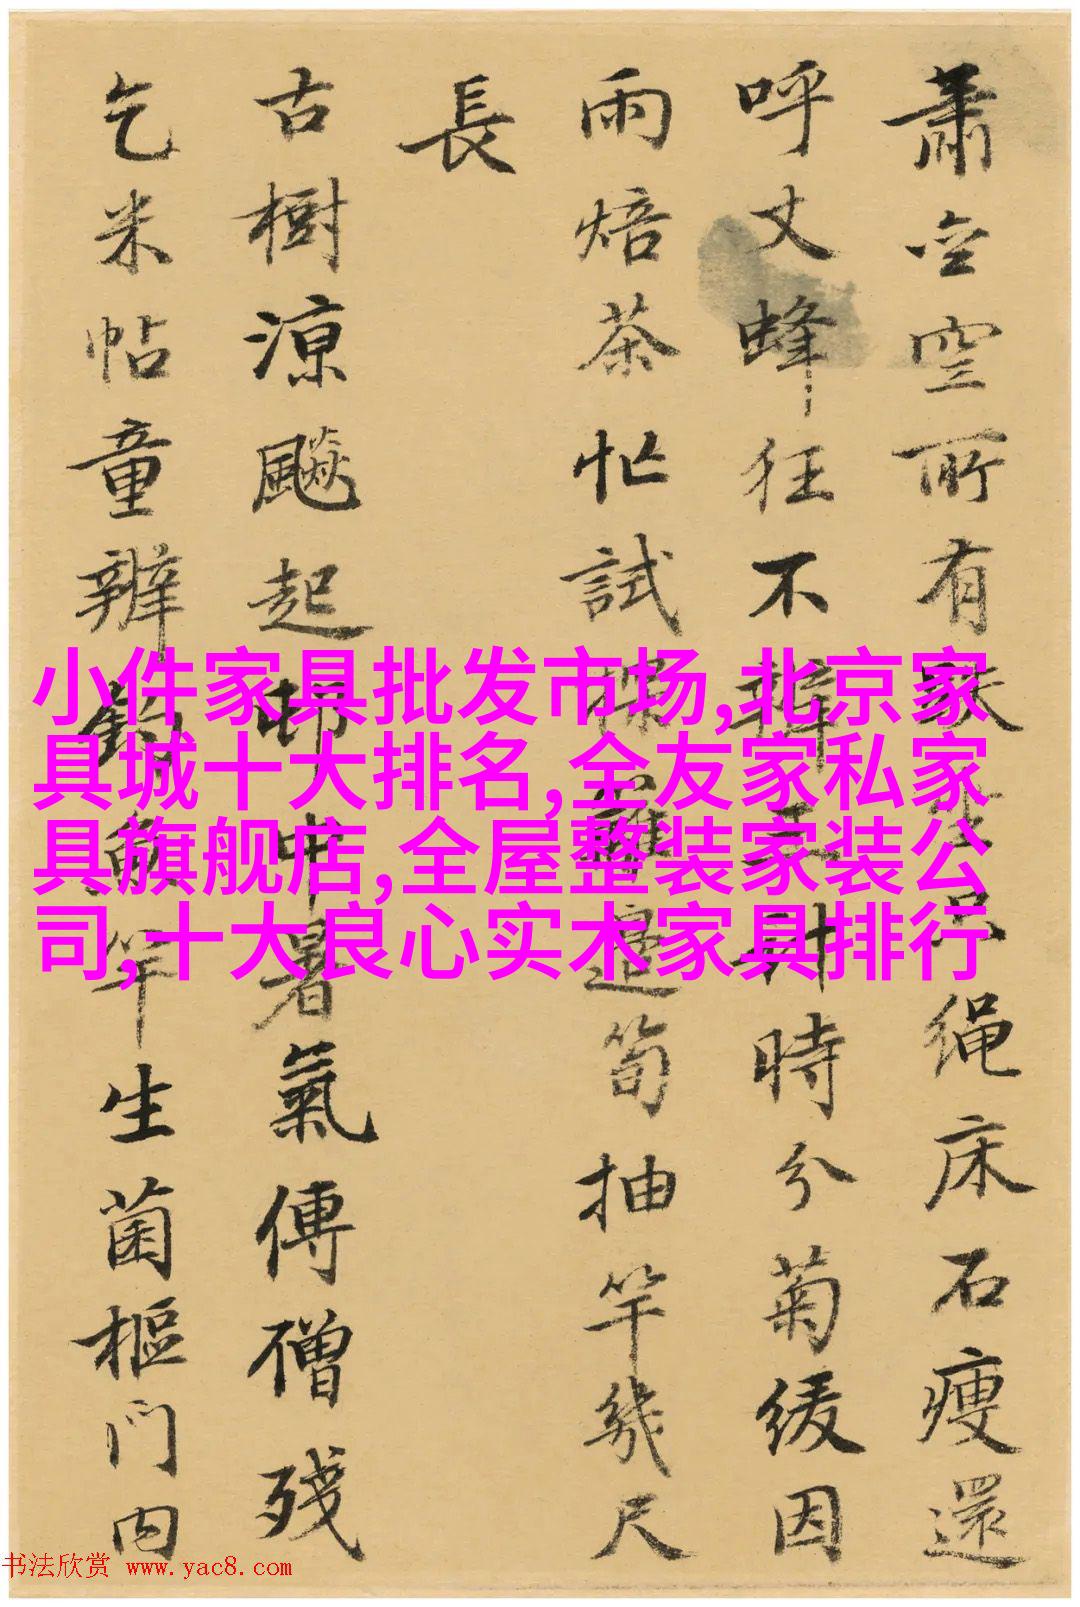 蕭寺空所有 繩床石瘦還
呼丈蜂狂不 時分菊緩因
雨焙茶忙試 邊筍抽竿幾尺
長
古樹涼飈起 中暑氣傳僧殘
乞米帖童辦釣魚竿生菌樞門内
小件家具批发市场,北京家
具城十大排名,全友家私家
具旗舰店,全屋整装家装公
司,十大良心实木家具排行
书法欣赏 www.yac8.com